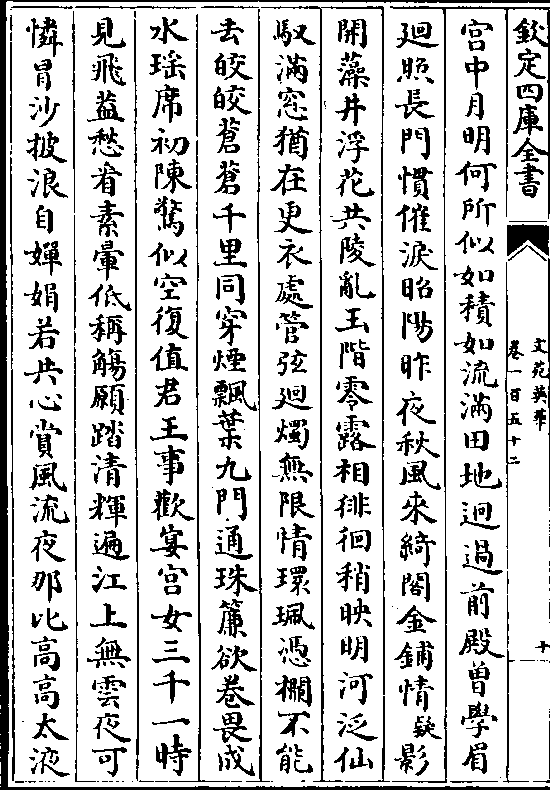 欽定四庫全書
文苑英華
卷一百五十二
十
宫中月明何所似如積如流滿田地迥過前殿曽學眉
廻照長門慣催淚昭陽昨夜秋風來綺閣金鋪情疑影
開藻井浮花共陵亂玉階零露相徘徊稍映明河泛仙
馭滿窓猶在更衣處管弦廻燭無限情環珮憑欄不能
去皎皎蒼蒼千里同穿煙飄葉九門通珠簾欲卷畏成
水瑶席初陳驚似空復值君王事歡宴宫女三千一時
見飛葢愁看素暈低稱觴願踏清輝遍江上無雲夜可
憐冒沙披浪自嬋娟若共心賞風流夜那比高高太液